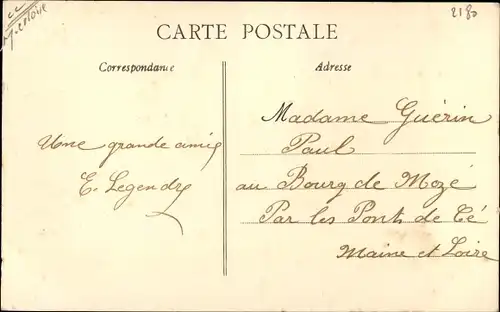 2180
CARTE POSTALE
Correspondance
Adresse
Madame Guérin
Paul
au Bourg de Mozé
Par les Ponts de Cé
Maine et Loire
Une grande amie
E. Legendre